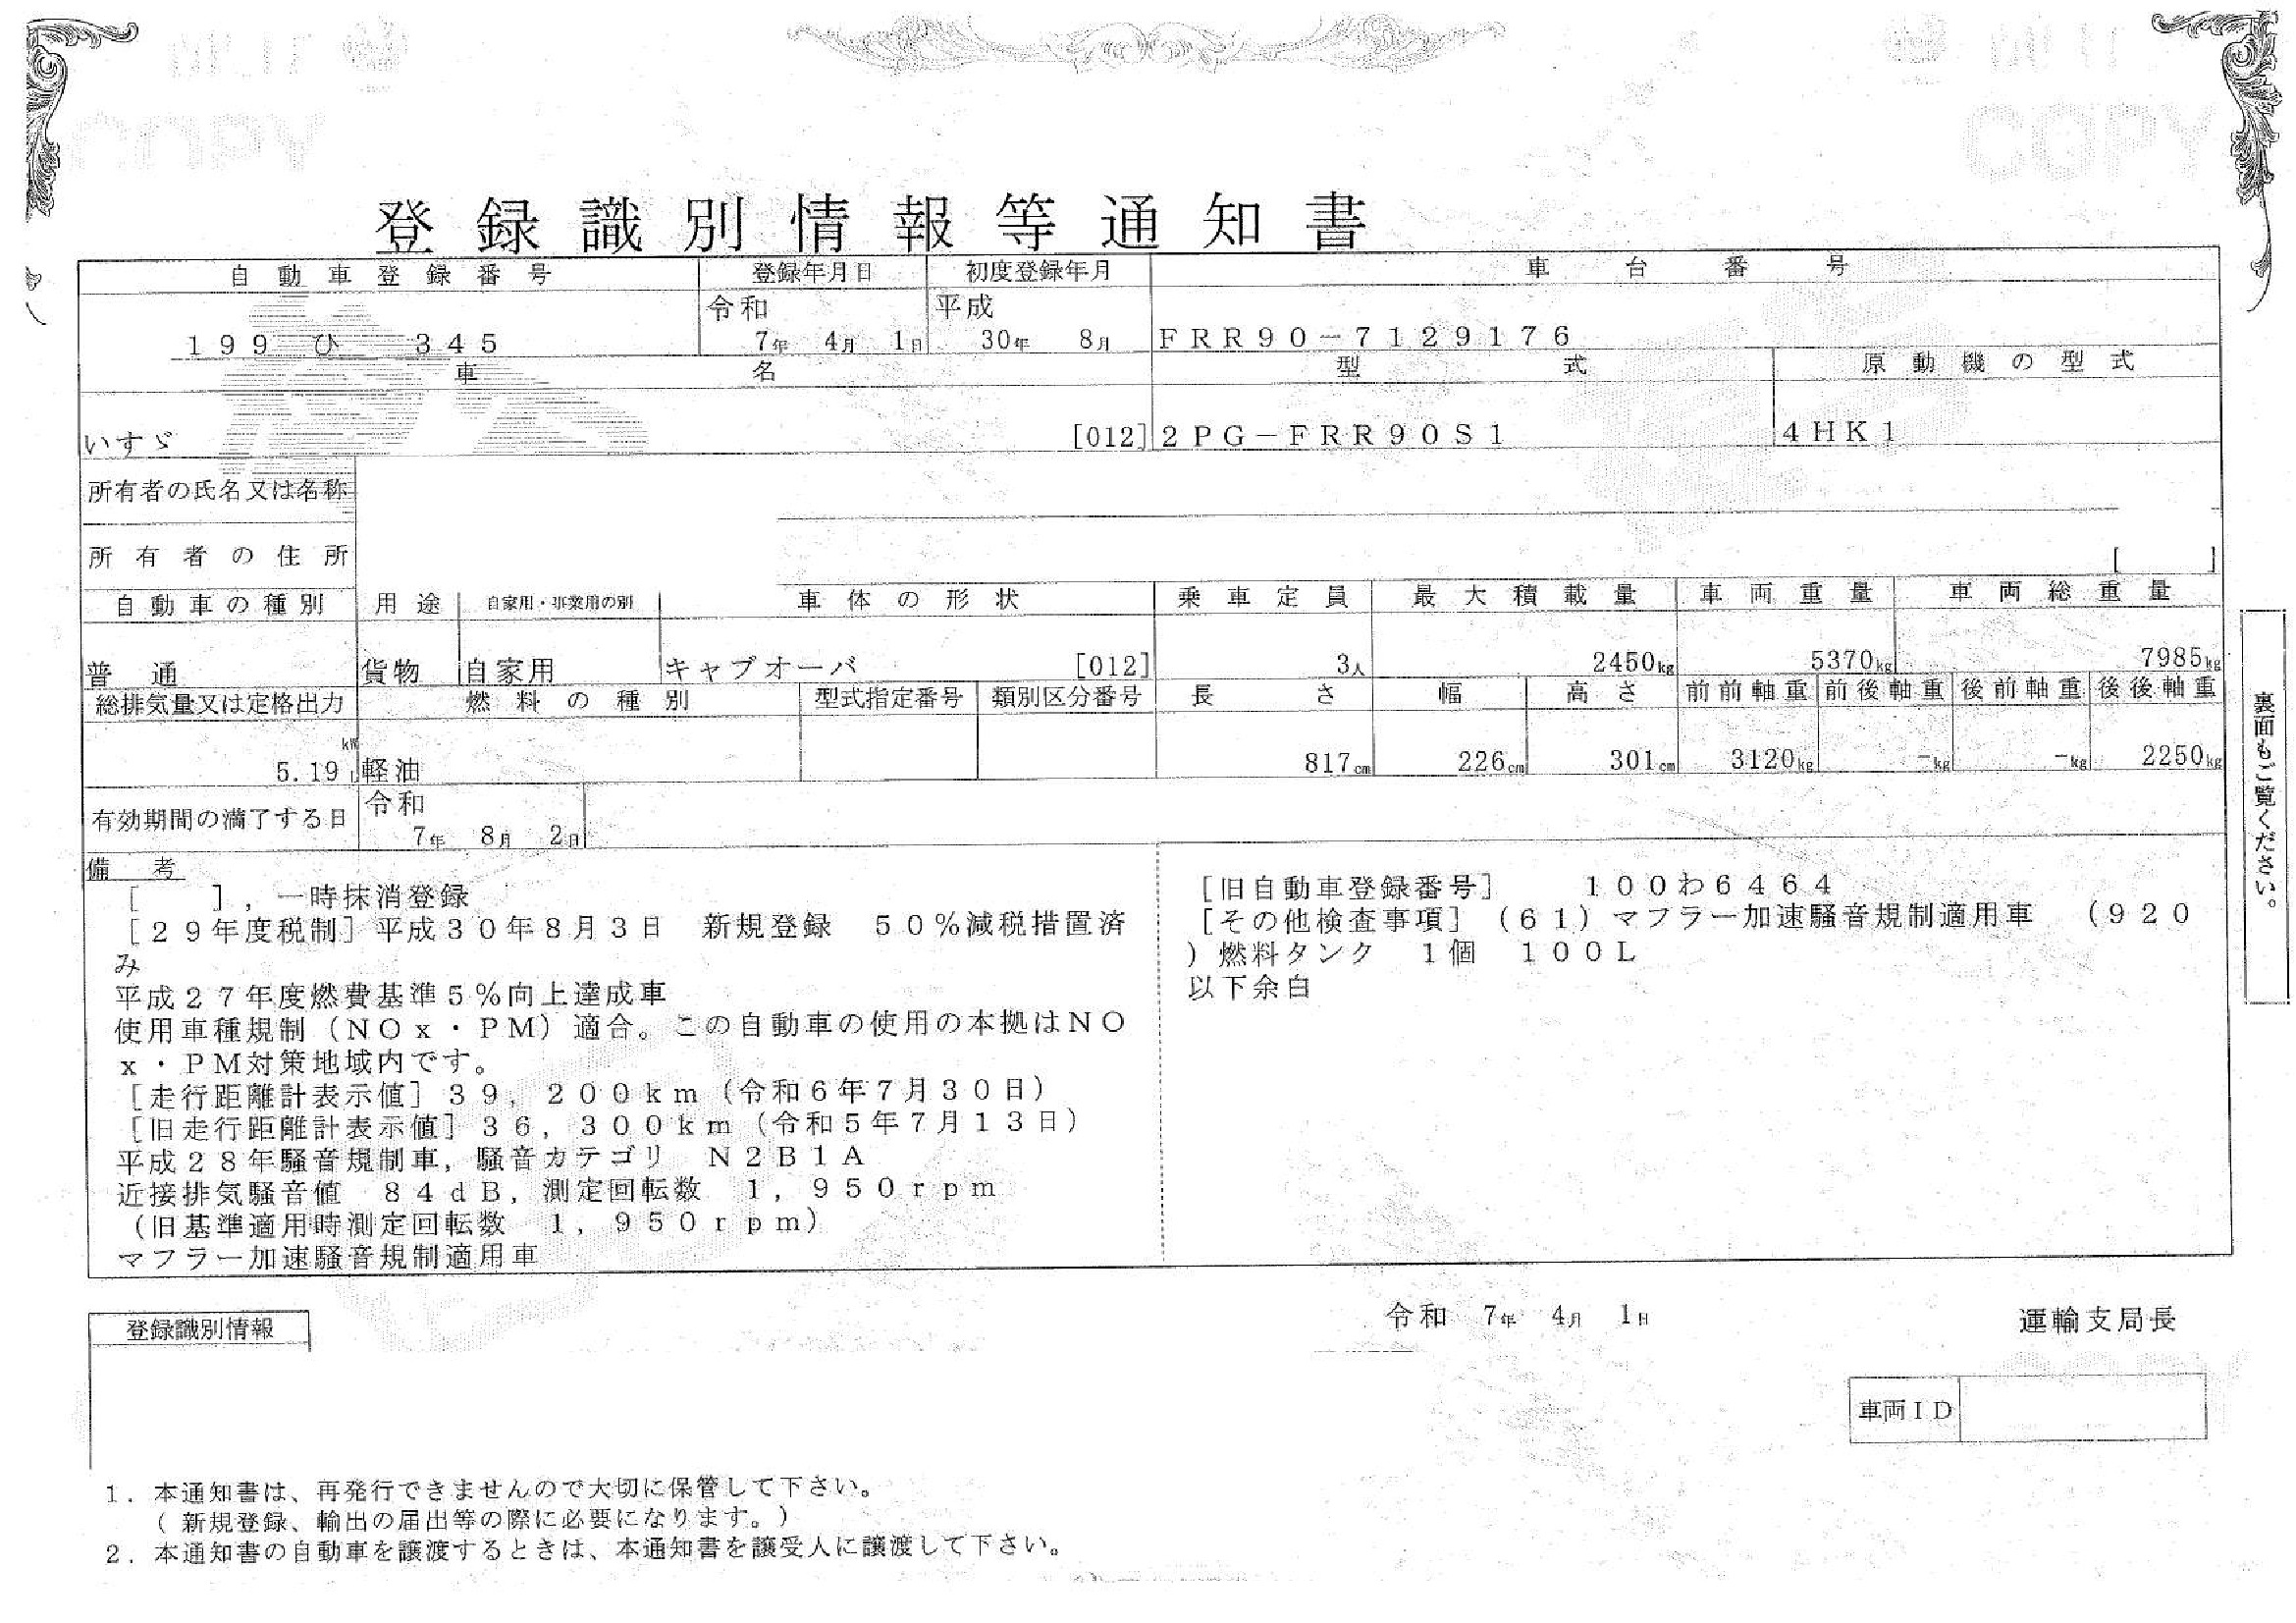 COPY
COPY
登録識別情報等通知書
自動車登録番号 登録年月日 初度登録年月 車台番号
令和 平成
199 ひ 345 7年 4月 1日 30年 8月 FRR90-7129176
車名 型式 原動機の型式
いすゞ [012] 2PG-FRR90S1 4HK1
所有者の氏名又は名称
所有者の住所 [ ]
自動車の種別 用途 自家用・事業用の別 車体の形状 乗車定員 最大積載量 車両重量 車両総重量
普通 貨物 自家用 キャブオーバ [012] 3人 2450kg 5370kg 7985kg
総排気量又は定格出力 燃料の種別 型式指定番号 類別区分番号 長さ 幅 高さ 前前軸重 前後軸重 後前軸重 後後軸重
kW
5.19 L 軽油 817cm 226cm 301cm 3120kg -kg -kg 2250kg
有効期間の満了する日 令和
7年 8月 2日
備考
[ ],一時抹消登録
[29年度税制]平成30年8月3日 新規登録 50%減税措置済
み
平成27年度燃費基準5%向上達成車
使用車種規制(NOx・PM)適合。この自動車の使用の本拠はNO
x・PM対策地域内です。
[走行距離計表示値]39,200km(令和6年7月30日)
[旧走行距離計表示値]36,300km(令和5年7月13日)
平成28年騒音規制車,騒音カテゴリ N2B1A
近接排気騒音値 84dB,測定回転数 1,950rpm
(旧基準適用時測定回転数 1,950rpm)
マフラー加速騒音規制適用車
[旧自動車登録番号] 100わ6464
[その他検査事項](61)マフラー加速騒音規制適用車 (920
)燃料タンク 1個 100L
以下余白
裏面もご覧ください。
令和 7年 4月 1日 運輸支局長
登録識別情報
COPY
車両ID
1.本通知書は、再発行できませんので大切に保管して下さい。
(新規登録、輸出の届出等の際に必要になります。)
2.本通知書の自動車を譲渡するときは、本通知書を譲受人に譲渡して下さい。